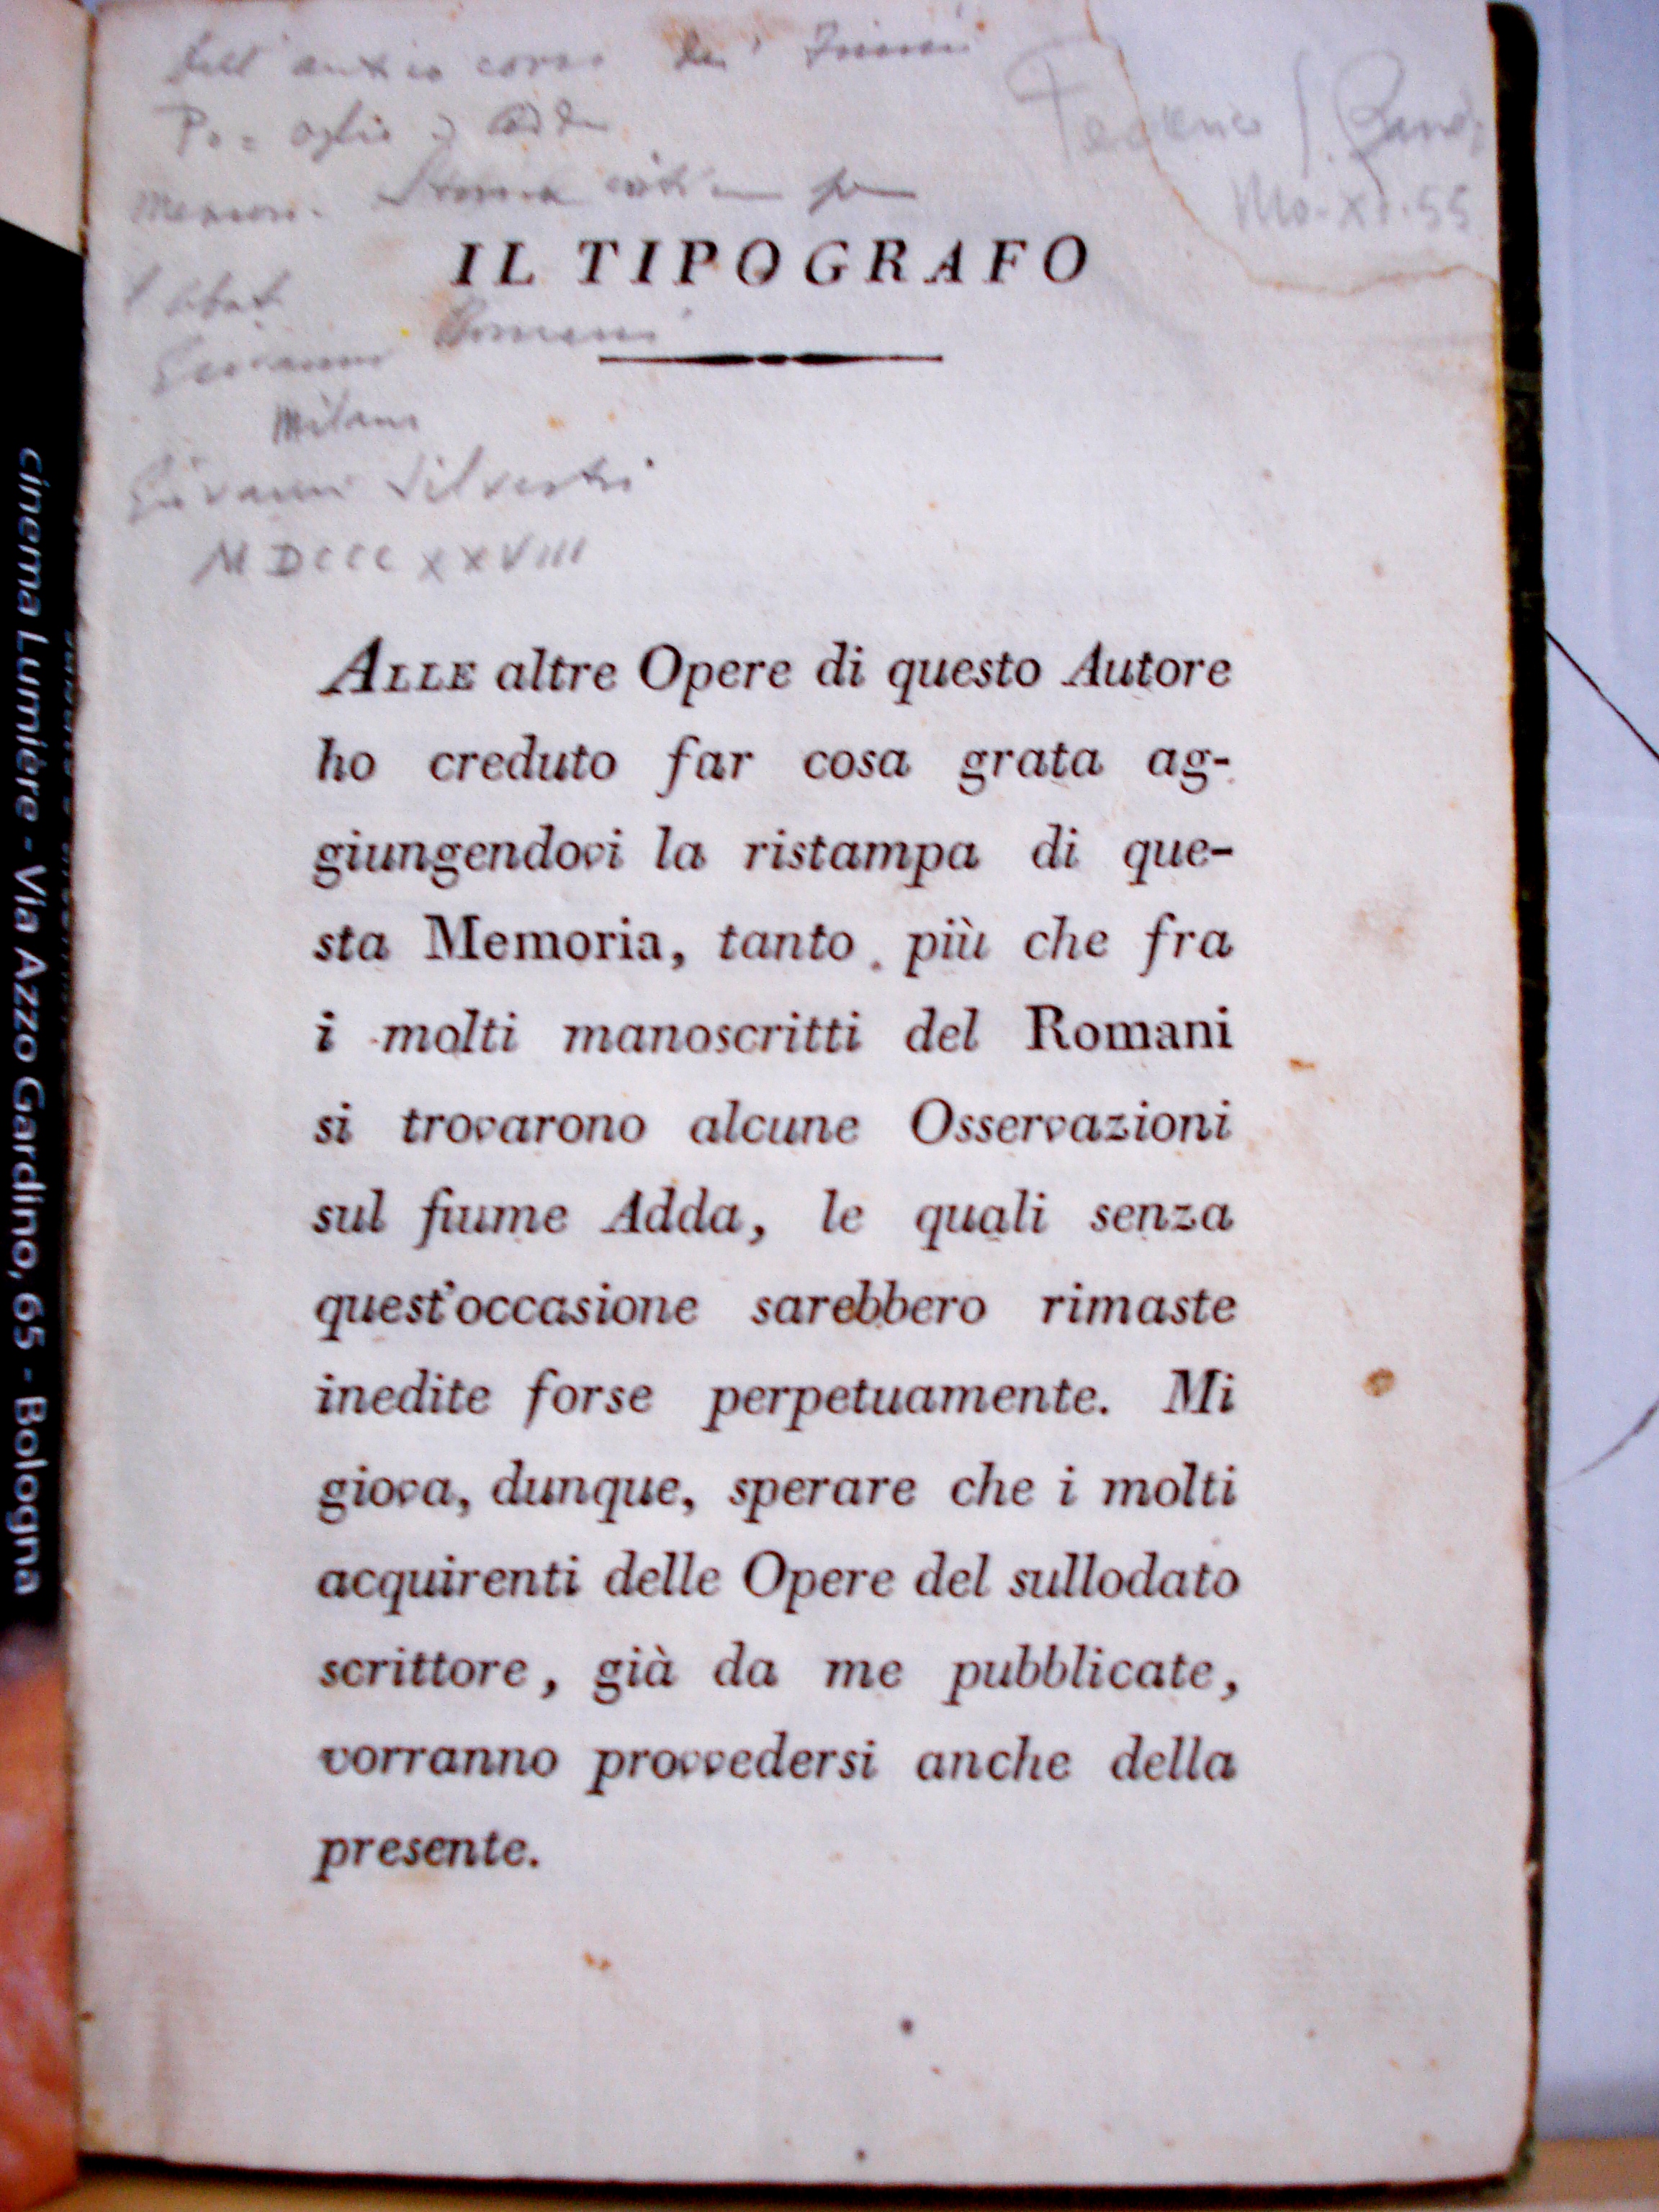 Dell' antico corso de' Fiumi
Po = Oglio e Adda
Memori. Storica critica per
l'abate
Giovanni Romani
Milano
Giovanni Silvestri
MDCCCXXVIII
Federico
Mo-XI-55
IL TIPOGRAFO
ALLE altre Opere di questo Autore
ho creduto far cosa grata ag-
giungendovi la ristampa di que-
sta Memoria, tanto più che fra
i molti manoscritti del Romani
si trovarono alcune Osservazioni
sul fiume Adda, le quali senza
quest'occasione sarebbero rimaste
inedite forse perpetuamente. Mi
giova, dunque, sperare che i molti
acquirenti delle Opere del sullodato
scrittore, già da me pubblicate,
vorranno provvedersi anche della
presente.
cinema Lumière - Via Azzo Gardino, 65 - Bologna